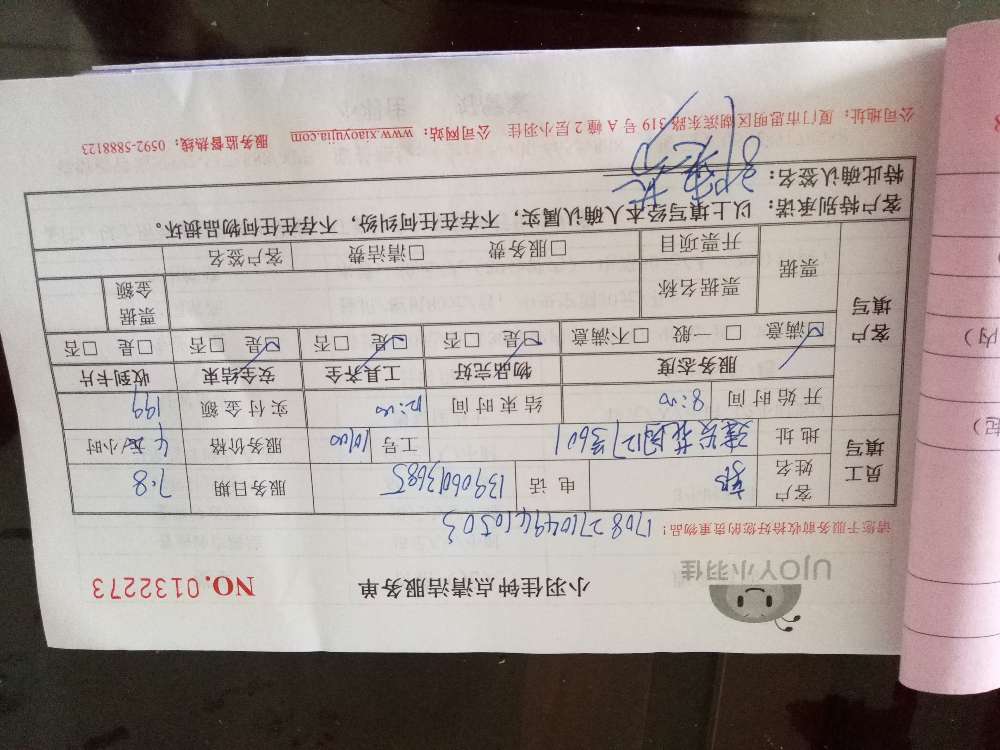 UJOY小羽佳
小羽佳钟点清洁服务单
NO.0132273
请您于服务前收拾好您的贵重物品！
17082710494610303
员工填写
客户姓名 郭 电话 13906013685 服务日期 7.8
地址 127号601 工号 1000 服务价格 4 元/小时
开始时间 8:00 结束时间 12:00 实付金额 199
客户填写
服务态度 物品完好 工具齐全 安全结束 收到卡片
☑满意 □一般 □不满意 ☑是 □否 ☑是 □否 ☑是 □否 □是 □否
票据 票据名称 票据金额
开票项目 □服务费 □清洁费 客户签名
客户特别承诺：以上填写经本人确认属实，不存在任何纠纷，不存在任何物品损坏。
特此确认签名：
公司地址：厦门市思明区湖滨东路319号A幢2层小羽佳 公司网站：www.xiaoyujia.com 服务监督热线：0592-5888123
内）
起）